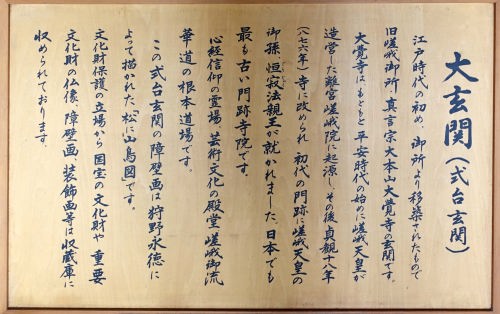 大玄関(式台玄関)
江戸時代の初め、御所より移築されたもので
旧嵯峨御所 真言宗大本山大覚寺の玄関です。
大覚寺はもともと平安時代の始めに嵯峨天皇が
造営した離宮嵯峨院に起源し、その後貞観十八年
(八七六年)寺に改められ 初代の門跡に嵯峨天皇の
御孫 恒寂法親王が就かれました。日本でも
最も古い門跡寺院です。
心経信仰の霊場 芸術文化の殿堂 嵯峨御流
華道の根本道場です。
この式台玄関の障壁画は狩野永徳に
よって描かれた「松に山鳥図」です。
文化財保護の立場から国宝の文化財や 重要
文化財の仏像、障壁画、装飾画等は収蔵庫に
収められております。